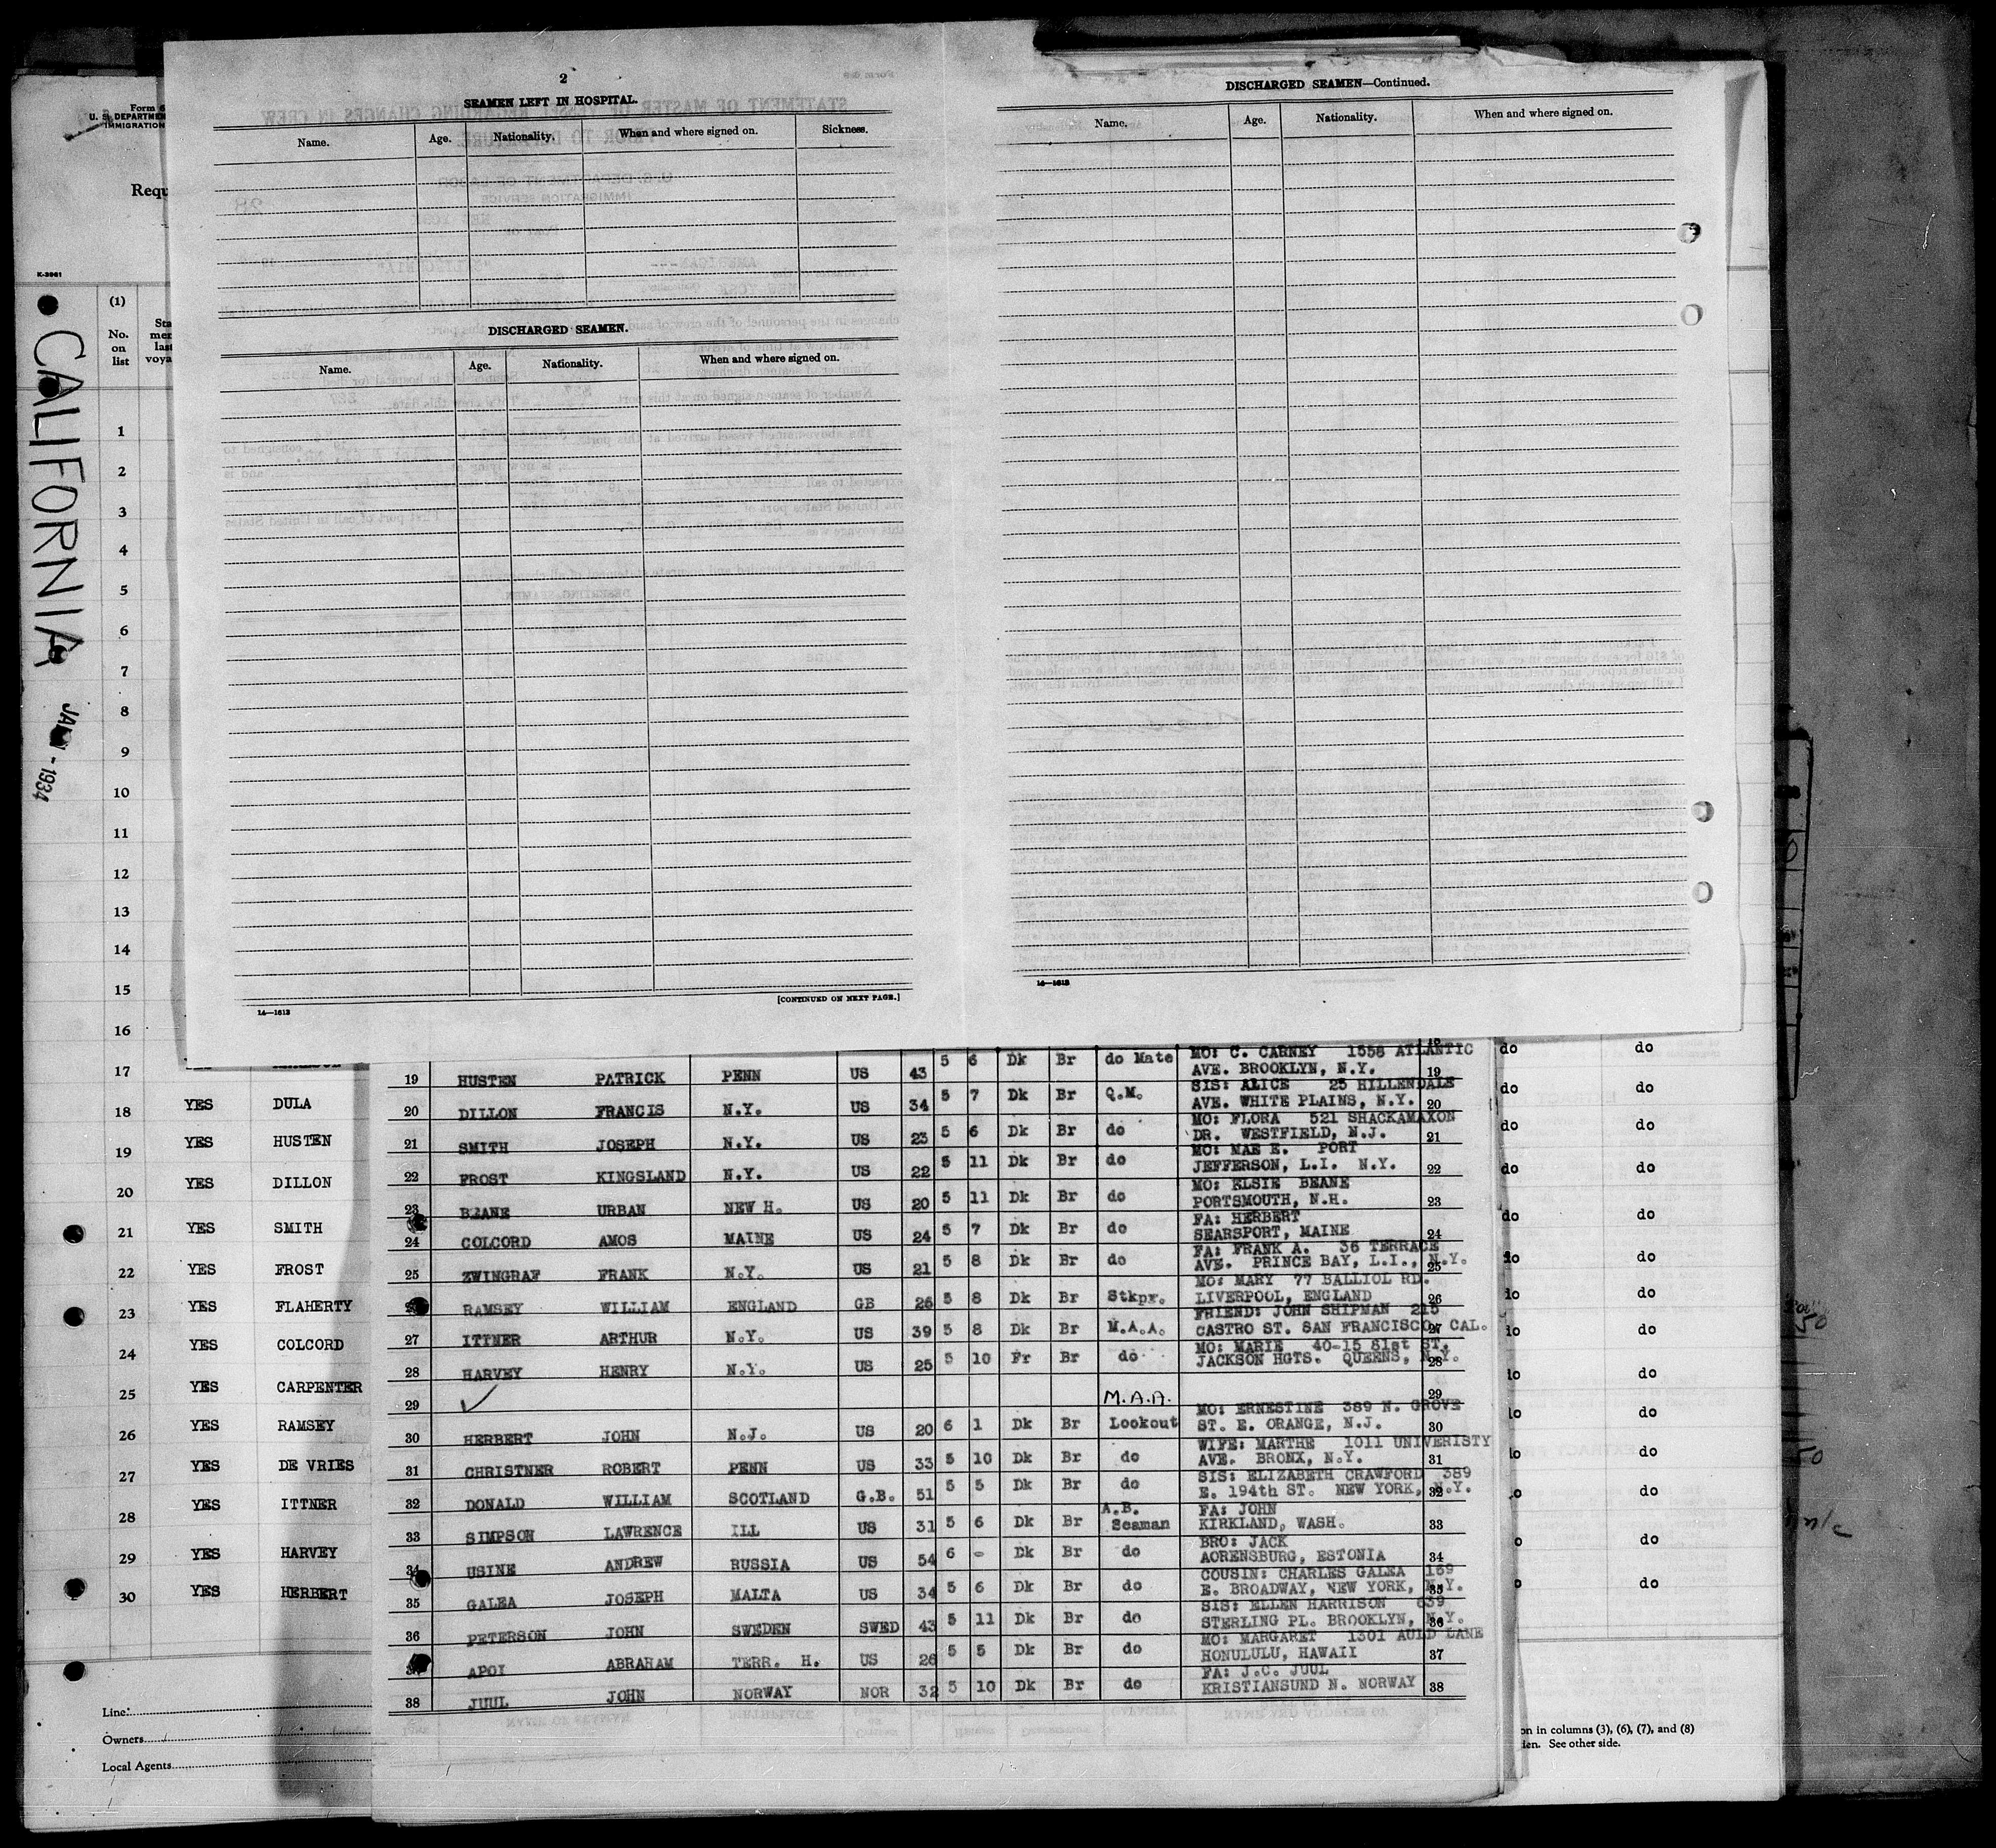 2
SEAMEN LEFT IN HOSPITAL.
Name. Age. Nationality. When and where signed on. Sickness.
DISCHARGED SEAMEN.
Name. Age. Nationality. When and where signed on.
14—1613
[CONTINUED ON NEXT PAGE.]
DISCHARGED SEAMEN—Continued.
Name. Age. Nationality. When and where signed on.
14—1613
Form 6
U. S. DEPARTMEN
IMMIGRATION
Requ
K-3961
CALIFORNIA
1934
(1)
No.
on
list
Sta
mer
last
voya
1
2
3
4
5
6
7
8
9
10
11
12
13
14
15
16
17
18 YES DULA
19 YES HUSTEN
20 YES DILLON
21 YES SMITH
22 YES FROST
23 YES FLAHERTY
24 YES COLCORD
25 YES CARPENTER
26 YES RAMSEY
27 YES DE VRIES
28 YES ITTNER
29 YES HARVEY
30 YES HERBERT
Line
Owners
Local Agents
5 6 Dk Br do Mate MO: C. CARNEY 1558 ATLANTIC
19 HUSTEN PATRICK PENN US 43 AVE. BROOKLYN, N.Y. 19
5 7 Dk Br Q.M. SIS: ALICE 25 HILLENDALE
20 DILLON FRANCIS N.Y. US 34 AVE. WHITE PLAINS, N.Y. 20
5 6 Dk Br do MO: FLORA 521 SHACKAMAXON
21 SMITH JOSEPH N.Y. US 23 DR. WESTFIELD, N.J. 21
5 11 Dk Br do MO: MAE E. PORT
22 FROST KINGSLAND N.Y. US 22 JEFFERSON, L.I. N.Y. 22
5 11 Dk Br do MO: ELSIE BEANE
23 BEANE URBAN NEW H. US 20 PORTSMOUTH, N.H. 23
5 7 Dk Br do FA: HERBERT
24 COLCORD AMOS MAINE US 24 SEARSPORT, MAINE 24
5 8 Dk Br do FA: FRANK A. 36 TERRACE
25 ZWINGRAF FRANK N.Y. US 21 AVE. PRINCE BAY, L.I., N.Y. 25
5 8 Dk Br Stkpr. MO: MARY 77 BALLIOL RD.
RAMSEY WILLIAM ENGLAND GB 26 LIVERPOOL, ENGLAND 26
5 8 Dk Br M.A.A. FRIEND: JOHN SHIPMAN 215
27 ITTNER ARTHUR N.Y. US 39 CASTRO ST. SAN FRANCISCO, CAL. 27
5 10 Fr Br do MO: MARIE 40-15 81st ST.
28 HARVEY HENRY N.Y. US 25 JACKSON HGTS. QUEENS, N.Y. 28
29 M.A.A. 29
6 1 Dk Br Lookout MO: ERNESTINE 389 N. GROVE
30 HERBERT JOHN N.J. US 20 ST. E. ORANGE, N.J. 30
5 10 Dk Br do WIFE: MARTHE 1011 UNIVERISTY
31 CHRISTNER ROBERT PENN US 33 AVE. BRONX, N.Y. 31
5 5 Dk Br do SIS: ELIZABETH CRAWFORD 389
32 DONALD WILLIAM SCOTLAND G.B. 51 E. 194th ST. NEW YORK, N.Y. 32
5 6 Dk Br A.B. Seaman FA: JOHN
33 SIMPSON LAWRENCE ILL US 31 KIRKLAND, WASH. 33
6 - Dk Br do BRO: JACK
34 USINE ANDREW RUSSIA US 54 AORENSBURG, ESTONIA 34
5 6 Dk Br do COUSIN: CHARLES GALEA 169
35 GALEA JOSEPH MALTA US 34 E. BROADWAY, NEW YORK, N.Y. 35
5 11 Dk Br do SIS: ELLEN HARRISON 639
36 PETERSON JOHN SWEDEN SWED 43 STERLING PL. BROOKLYN, N.Y. 36
5 5 Dk Br do MO: MARGARET 1301 AULD LANE
APOI ABRAHAM TERR. H. US 26 HONULULU, HAWAII 37
5 10 Dk Br do FA: J.C. JUUL
38 JUUL JOHN NORWAY NOR 32 KRISTIANSUND N. NORWAY 38
do do
do do
do do
do do
do do
do do
do
do
do
do
do
do
do
do
on in columns (3), (6), (7), and (8)
See other side.